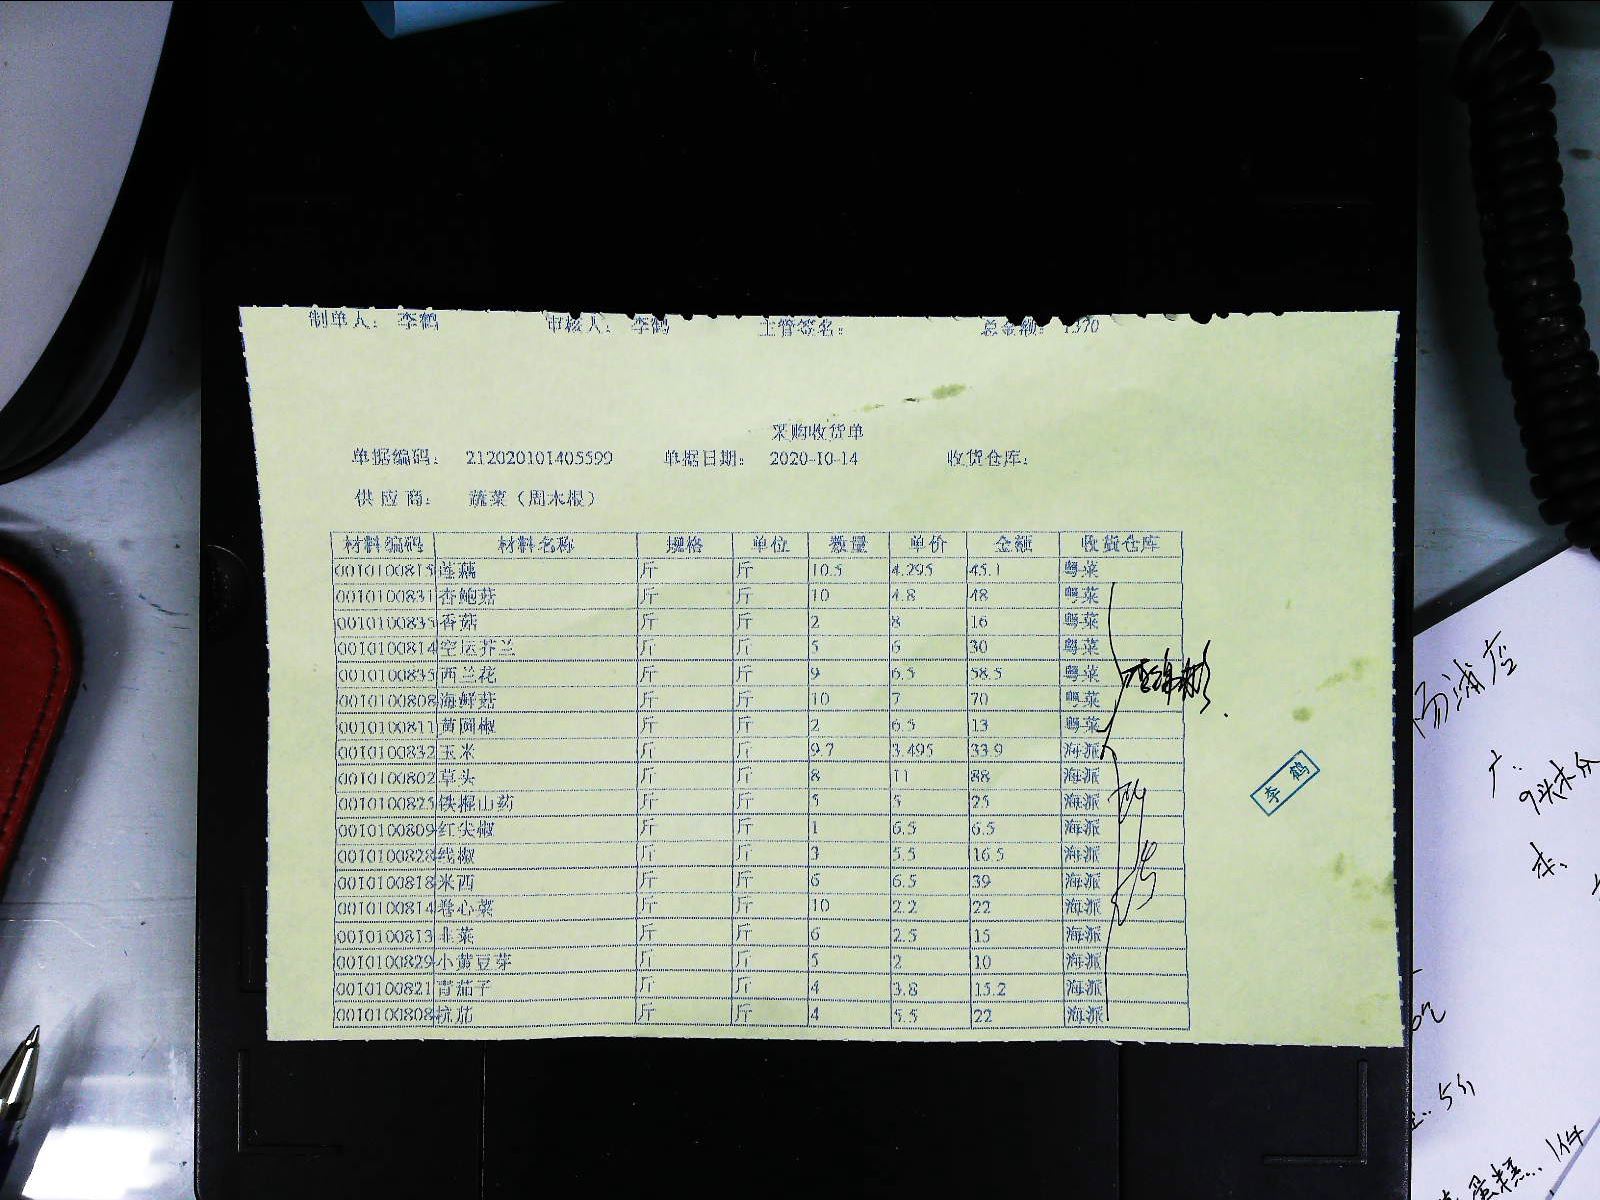 制单人： 李鹤 审核人： 李鹤 主管签名： 总金额： 1370
采购收货单
单据编码： 212020101405599 单据日期： 2020-10-14 收货仓库：
供应商： 蔬菜（周木根）
材料编码 材料名称 规格 单位 数量 单价 金额 收货仓库
0010100815 莲藕 斤 斤 10.5 4.295 45.1 粤菜
0010100831 杏鲍菇 斤 斤 10 4.8 48 粤菜
0010100835 香菇 斤 斤 2 8 16 粤菜
0010100814 空运芥兰 斤 斤 5 6 30 粤菜
0010100835 西兰花 斤 斤 9 6.5 58.5 粤菜
0010100808 海鲜菇 斤 斤 10 7 70 粤菜
0010100811 黄圆椒 斤 斤 2 6.5 13 粤菜
0010100832 玉米 斤 斤 9.7 3.495 33.9 海派
0010100802 草头 斤 斤 8 11 88 海派
0010100825 铁棍山药 斤 斤 5 5 25 海派
0010100809 红尖椒 斤 斤 1 6.5 6.5 海派
0010100828 线椒 斤 斤 3 5.5 16.5 海派
0010100818 米西 斤 斤 6 6.5 39 海派
0010100814 卷心菜 斤 斤 10 2.2 22 海派
0010100813 韭菜 斤 斤 6 2.5 15 海派
0010100829 小黄豆芽 斤 斤 5 2 10 海派
0010100821 青茄子 斤 斤 4 3.8 15.2 海派
0010100808 杭茄 斤 斤 4 5.5 22 海派
李鹤
5分
蛋糕... 1件